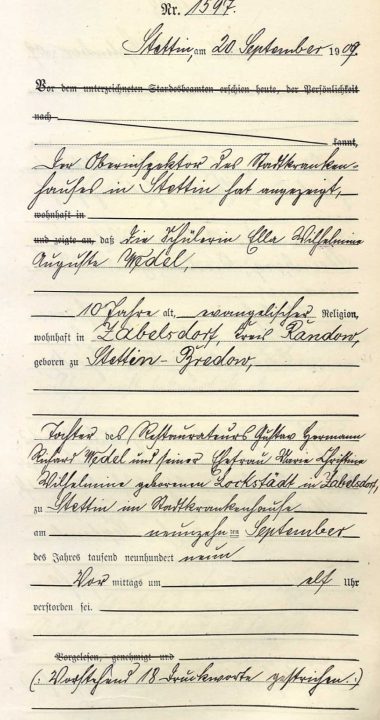 Nr. 1597.
Stettin, am 20. September 1909.
Vor dem unterzeichneten Standesbeamten erschien heute, der Persönlichkeit
nach
kannt,
Der Oberinspektor des Stadtkranken-
hauses in Stettin hat angezeigt,
wohnhaft in
und zeigte an, daß die Schülerin Ella Wilhelmine
Auguste Wedel,
10 Jahre alt, evangelischer Religion,
wohnhaft in Zabelsdorf, Kreis Randow,
geboren zu Stettin-Bredow,
Tochter des Restaurateurs Gustav Hermann
Richard Wedel und seiner Ehefrau Marie Christine
Wilhelmine geborenen Lockstädt in Zabelsdorf,
zu Stettin im Stadtkrankenhause
am neunzehnten September
des Jahres tausend neunhundert neun
Vor mittags um elf Uhr
verstorben sei.
Vorgelesen, genehmigt und
(: Vorstehend 18 Druckworte gestrichen. :)